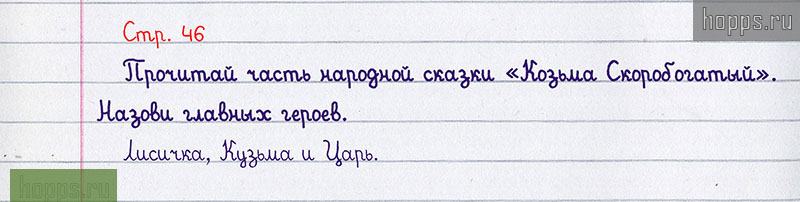 hopps.ru
Стр. 46
Прочитай часть народной сказки «Козьма Скоробогатый».
Назови главных героев.
Лисичка, Кузьма и Царь.
hopps.ru